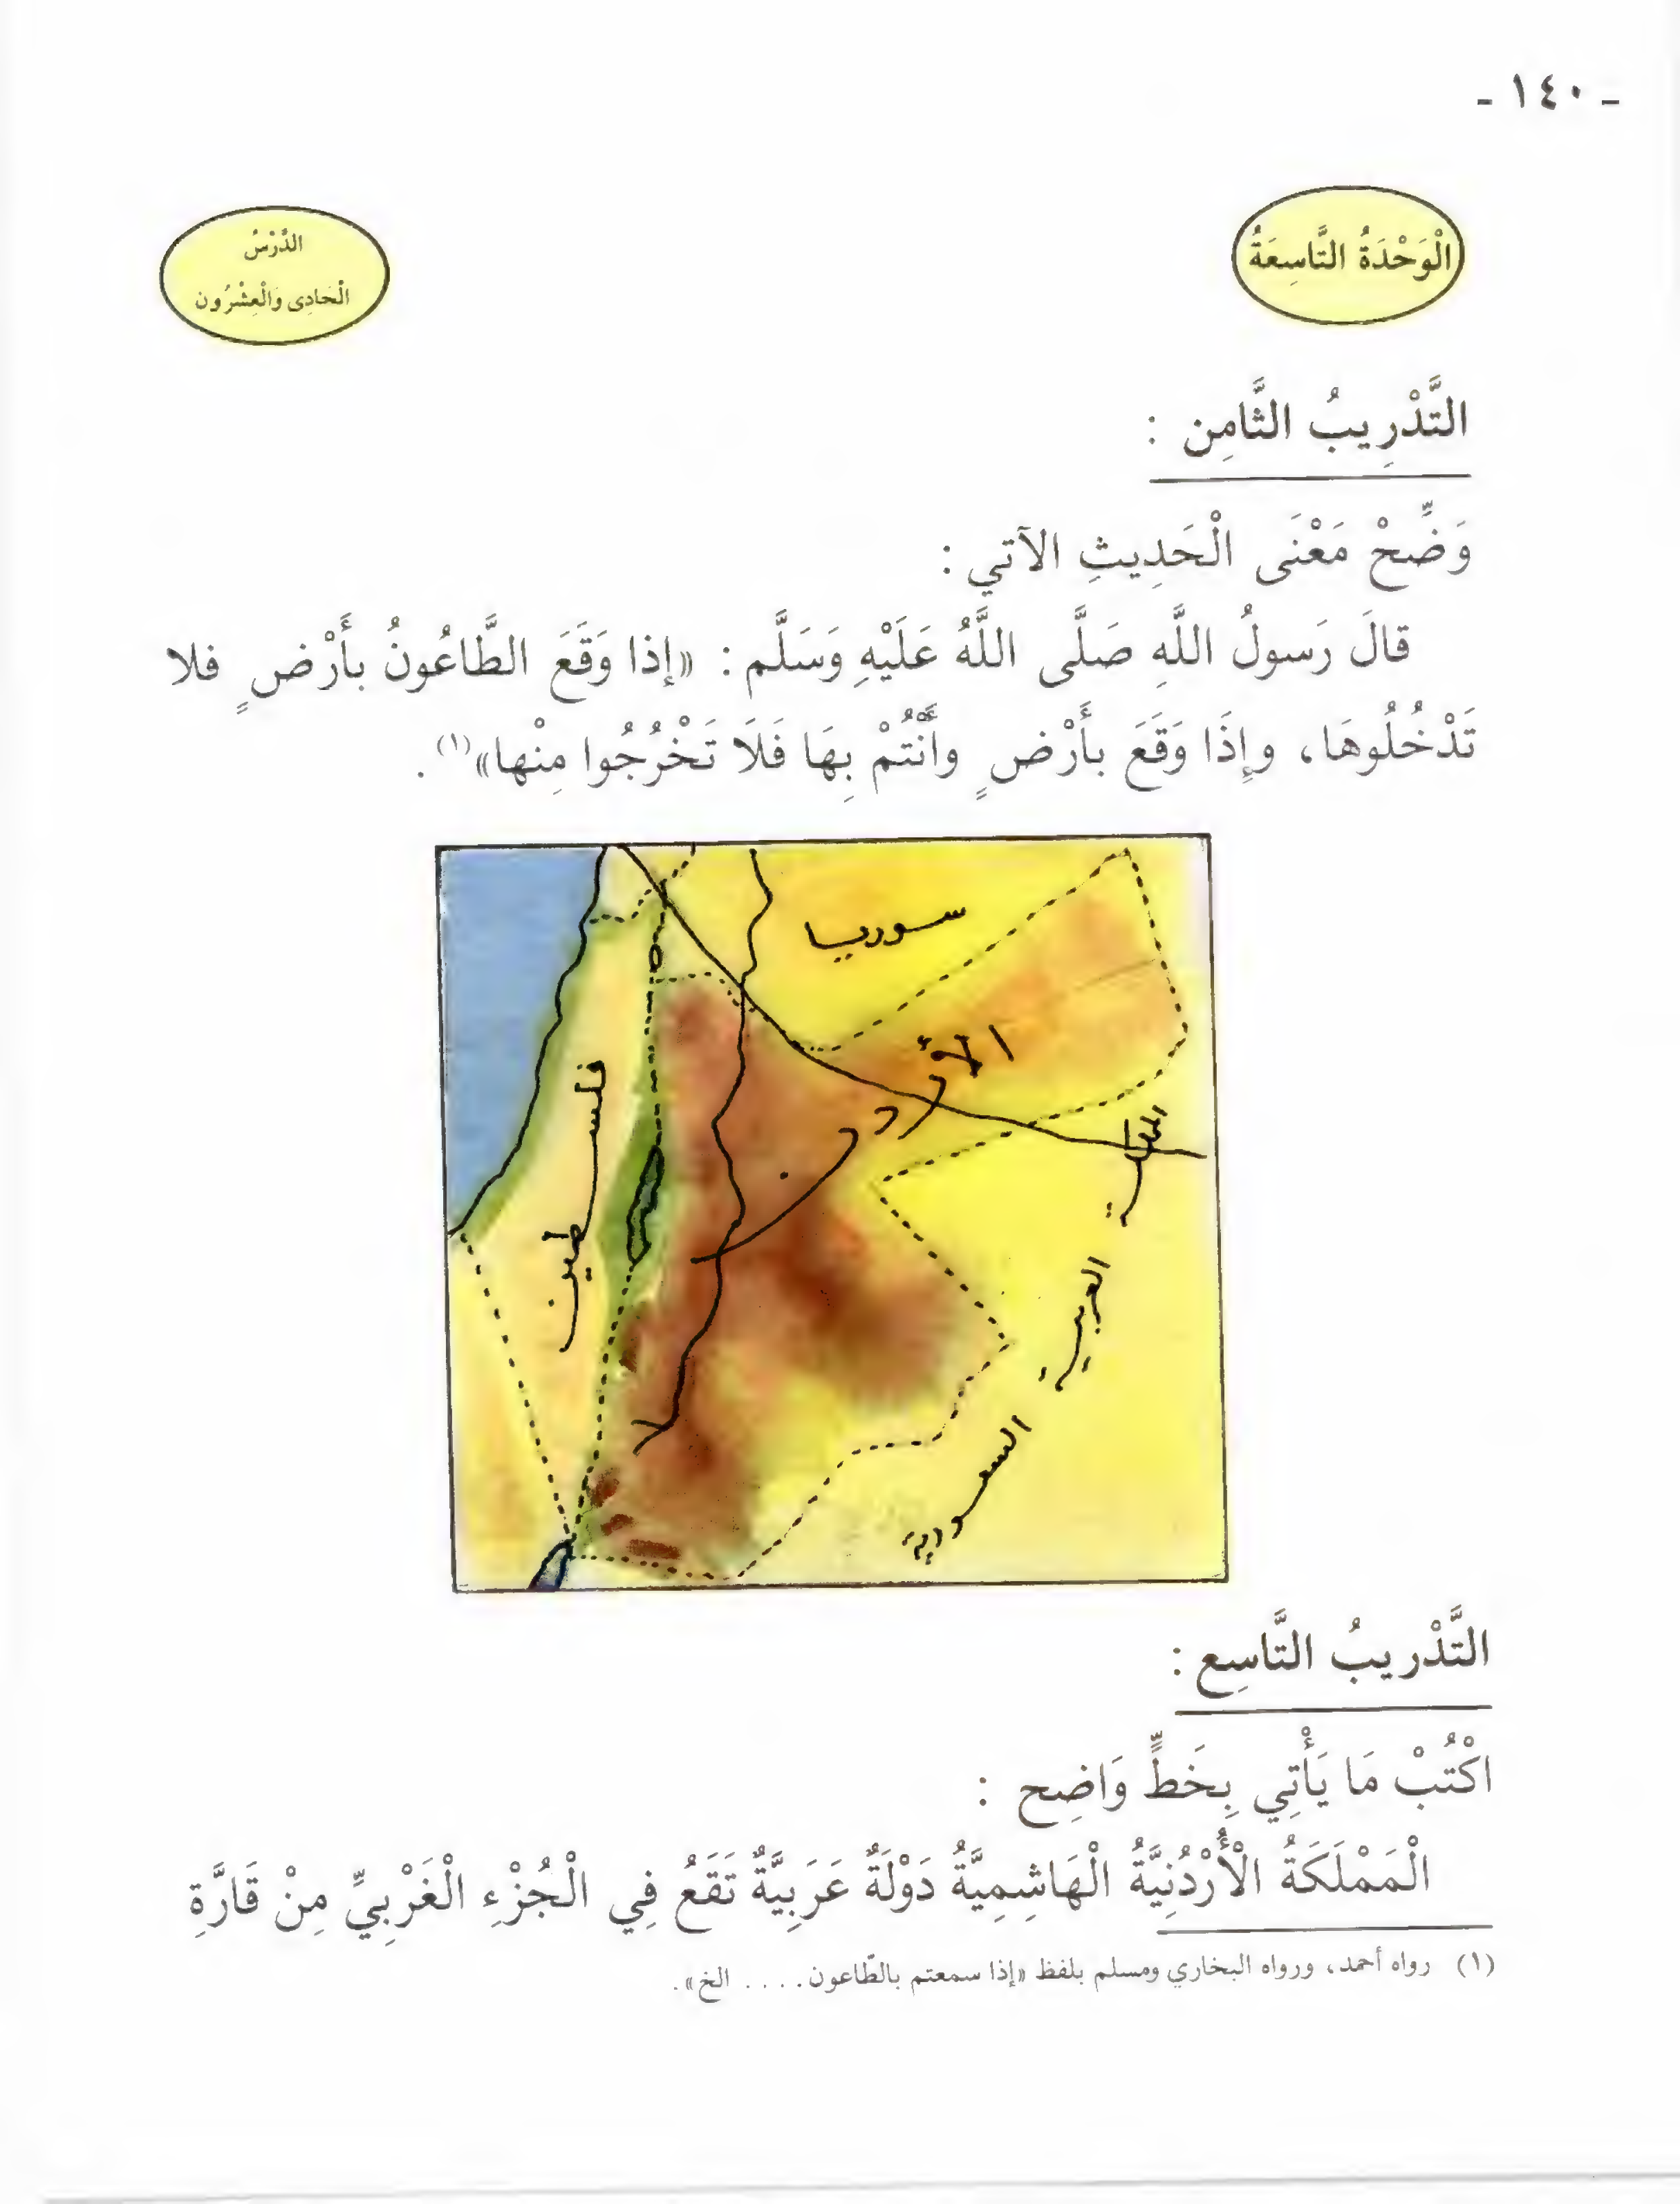 - ١٤٠ -
الْوَحْدَةُ التَّاسِعَةُ
الدَّرْسُ
الْحَادِى وَالْعِشْرُون
التَّدْرِيبُ الثَّامِن :
وَضِّحْ مَعْنَى الْحَدِيثِ الآتي :
قالَ رَسولُ اللَّهِ صَلَّى اللَّهُ عَلَيْهِ وَسَلَّم : «إذا وَقَعَ الطَّاعُونُ بأَرْضٍ فلا
تَدْخُلُوهَا، وإِذَا وَقَعَ بأَرْضٍ وأَنْتُمْ بِهَا فَلَا تَخْرُجُوا مِنْها»(١) .
سوريا
الأردن
فلسطين
المملكة
العربية
السعودية
التَّدْريبُ التَّاسِع :
اكْتُبْ مَا يَأْتِي بِخَطٍّ وَاضِح :
الْمَمْلَكَةُ الْأُرْدُنِيَّةُ الْهَاشِمِيَّةُ دَوْلَةٌ عَرَبِيَّةٌ تَقَعُ فِي الْجُزْءِ الْغَرْبِيِّ مِنْ قَارَّةِ
(١) رواه أحمد، ورواه البخاري ومسلم بلفظ «إذا سمعتم بالطّاعون . . . . الخ» .